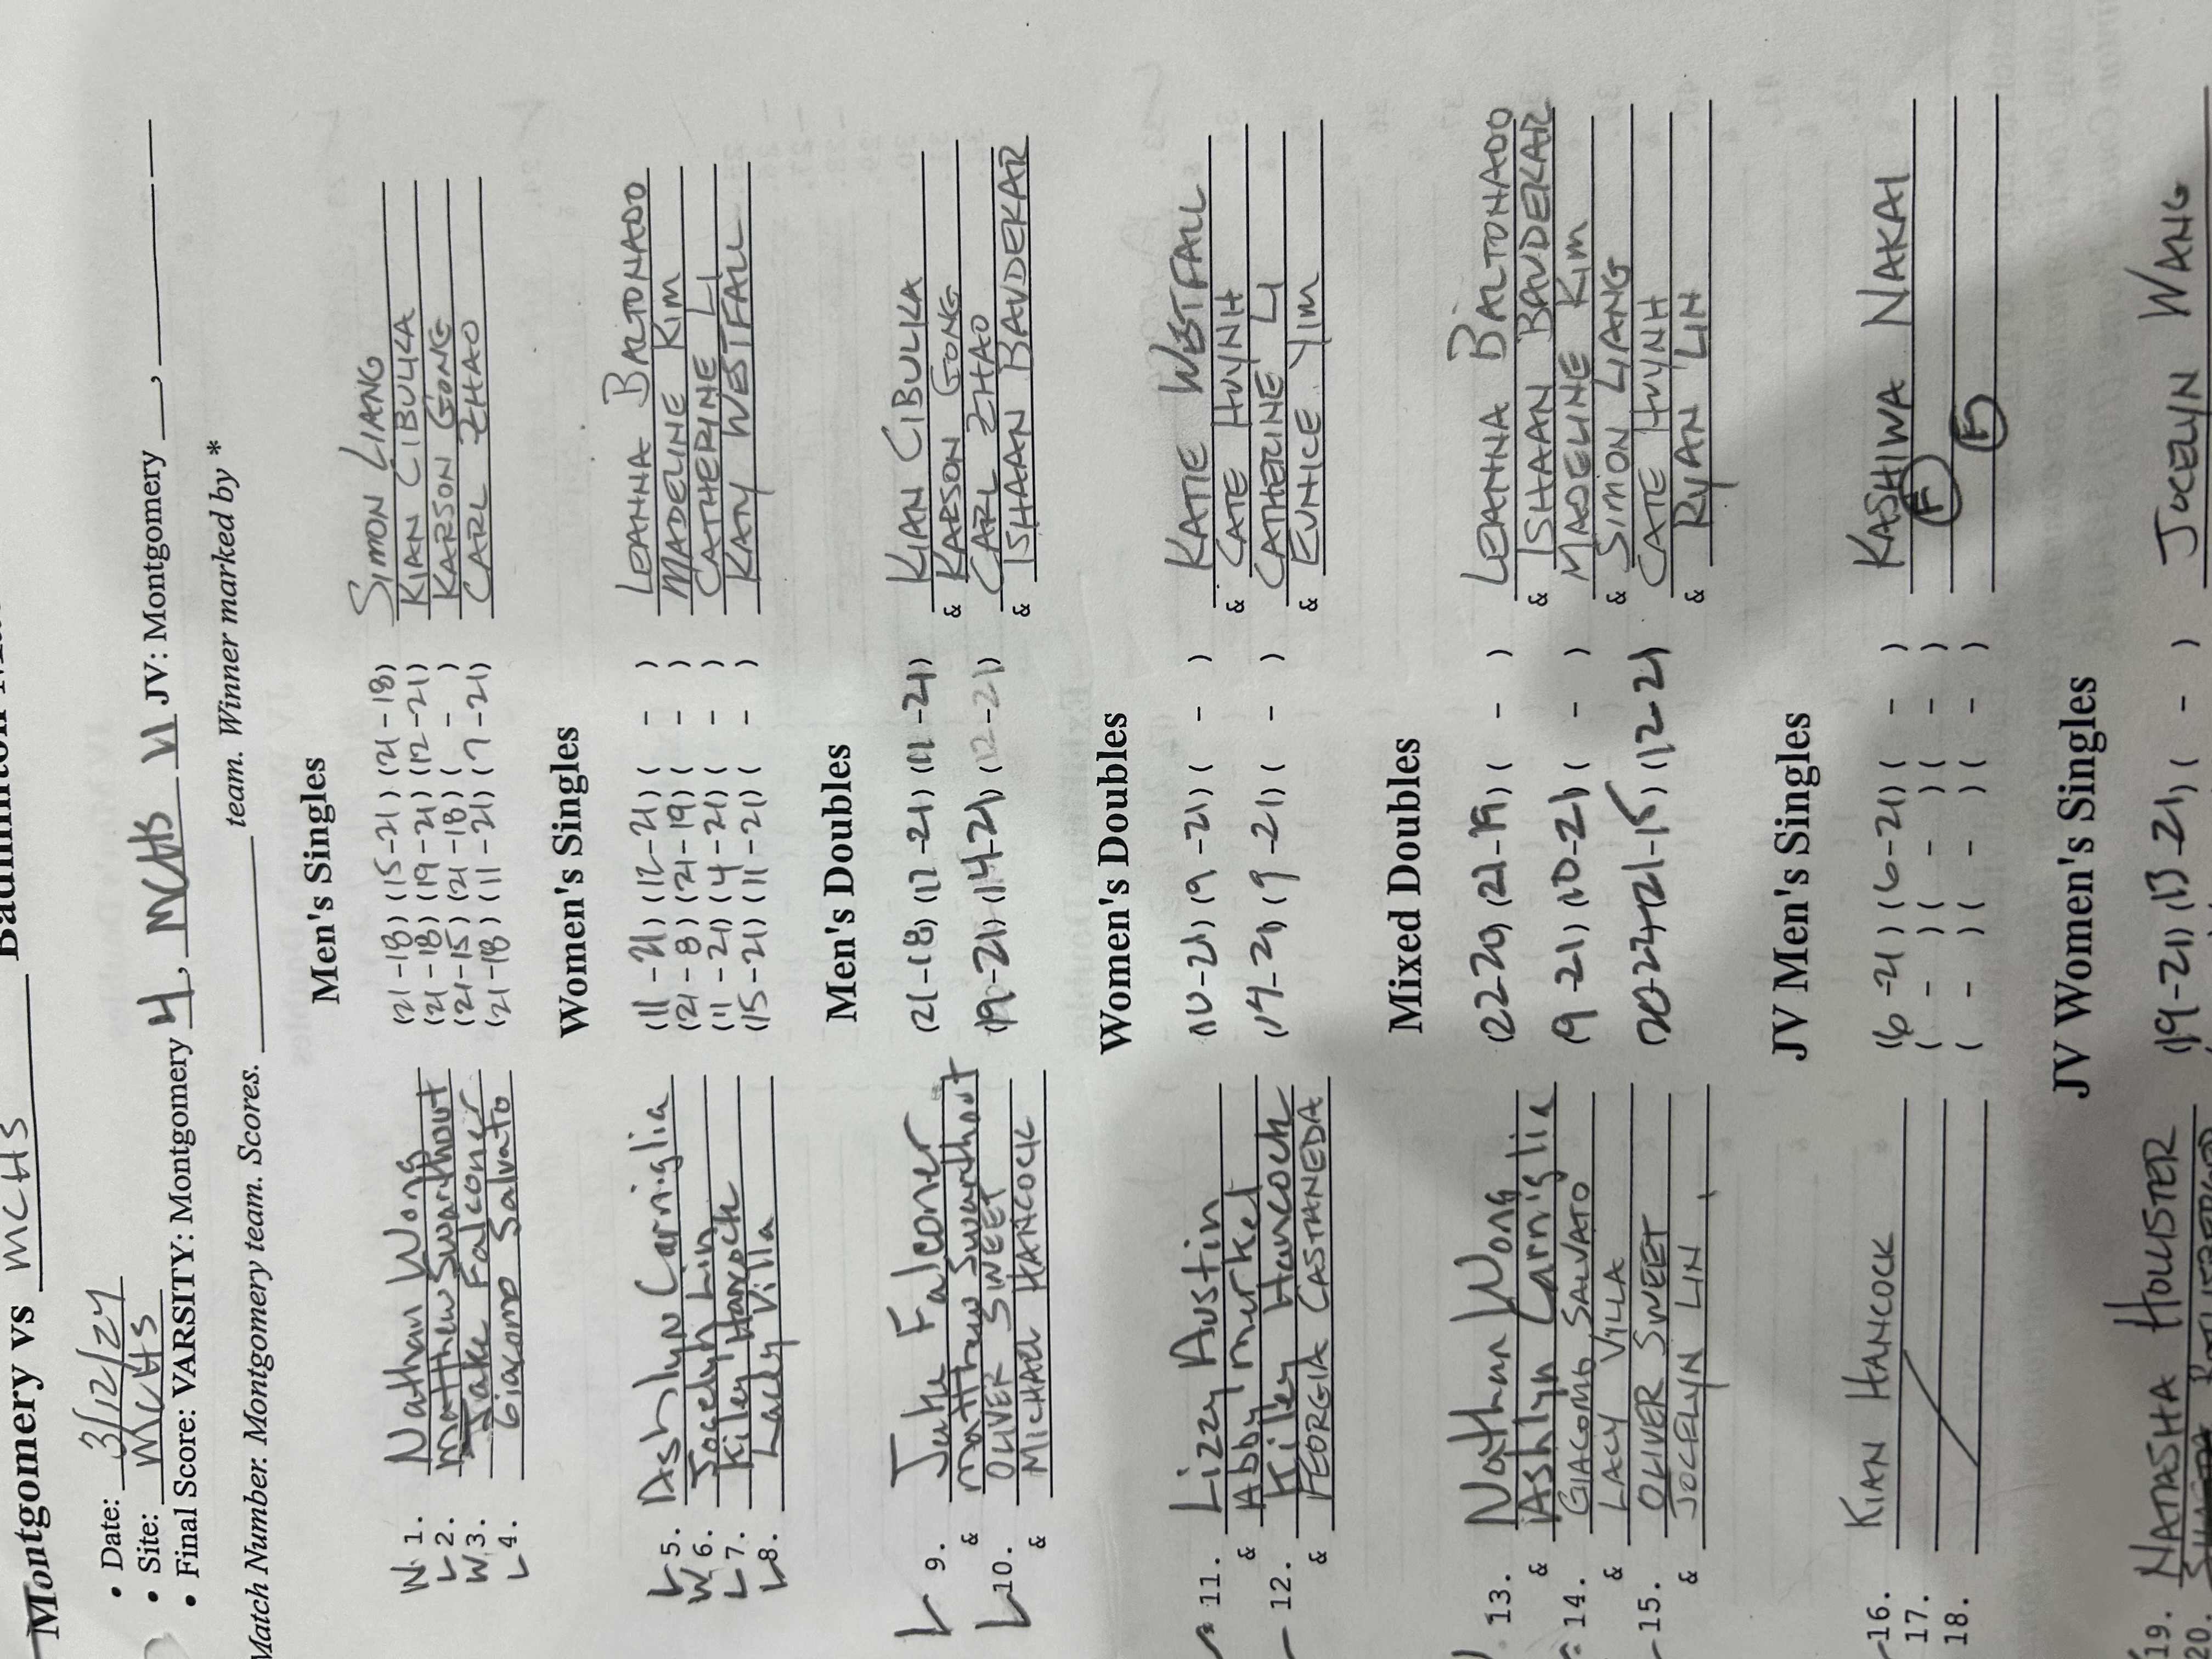 Montgomery vs MCHS Badminton
• Date: 3/12/24
• Site: MCHS
• Final Score: VARSITY: Montgomery 4, MCHS 11 JV: Montgomery __, ______ __
Match Number. Montgomery team. Scores. ______ team. Winner marked by *
Men's Singles
W 1. Nathan Wong (21-18) (15-21) (21-18) SIMON LIANG
L 2. Matthew Swarthout (21-18) (19-21) (12-21) KIAN CIBULKA
W 3. Jake Falconer (21-15) (21-18) ( - ) KARSON GONG
L 4. Giacomo Salvato (21-18) (11-21) (7-21) CARL ZHAO
Women's Singles
L 5. Ashlyn Carniglia (11-21) (12-21) ( - ) LEANNA BALTONADO
W 6. Jocelyn Lin (21-8) (21-19) ( - ) MADELINE KIM
L 7. Kiley Hancock (11-21) (4-21) ( - ) CATHERINE LI
L 8. Lacey Villa (15-21) (11-21) ( - ) KATY WESTFALL
Men's Doubles
L 9. Jake Falconer (21-18) (12-21) (11-21) KIAN CIBULKA
& Matthew Swarthout & KARSON GONG
L 10. OLIVER SWEET (19-21) (14-21) (12-21) CARL ZHAO
& MICHAEL HANCOCK & ISHAAN BAVDEKAR
Women's Doubles
11. Lizzy Austin (10-21) (9-21) ( - ) KATIE WESTFALL
& Abby Murkel & CATE HUYNH
12. Kiley Hancock (14-21) (9-21) ( - ) CATHERINE LI
& GEORGIA CASTANEDA & EUNICE YIM
Mixed Doubles
13. Nathan Wong (22-20) (21-19) ( - ) LEANNA BALTONADO
& Ashlyn Carniglia & ISHAAN BAVDEKAR
14. GIACOMO SALVATO (9-21) (10-21) ( - ) MADELINE KIM
& LACY VILLA & SIMON LIANG
15. OLIVER SWEET (20-22) (21-15) (12-21) CATE HUYNH
& JOCELYN LIN & RYAN LIN
JV Men's Singles
16. KIAN HANCOCK (6-21) (6-21) ( - ) KASHIWA NAKAI
17. ( - ) ( - ) ( - ) F
18. ( - ) ( - ) ( - ) F
JV Women's Singles
19. NATASHA HOLLISTER (19-21) (13-21) ( - ) JOCELYN WANG
20.